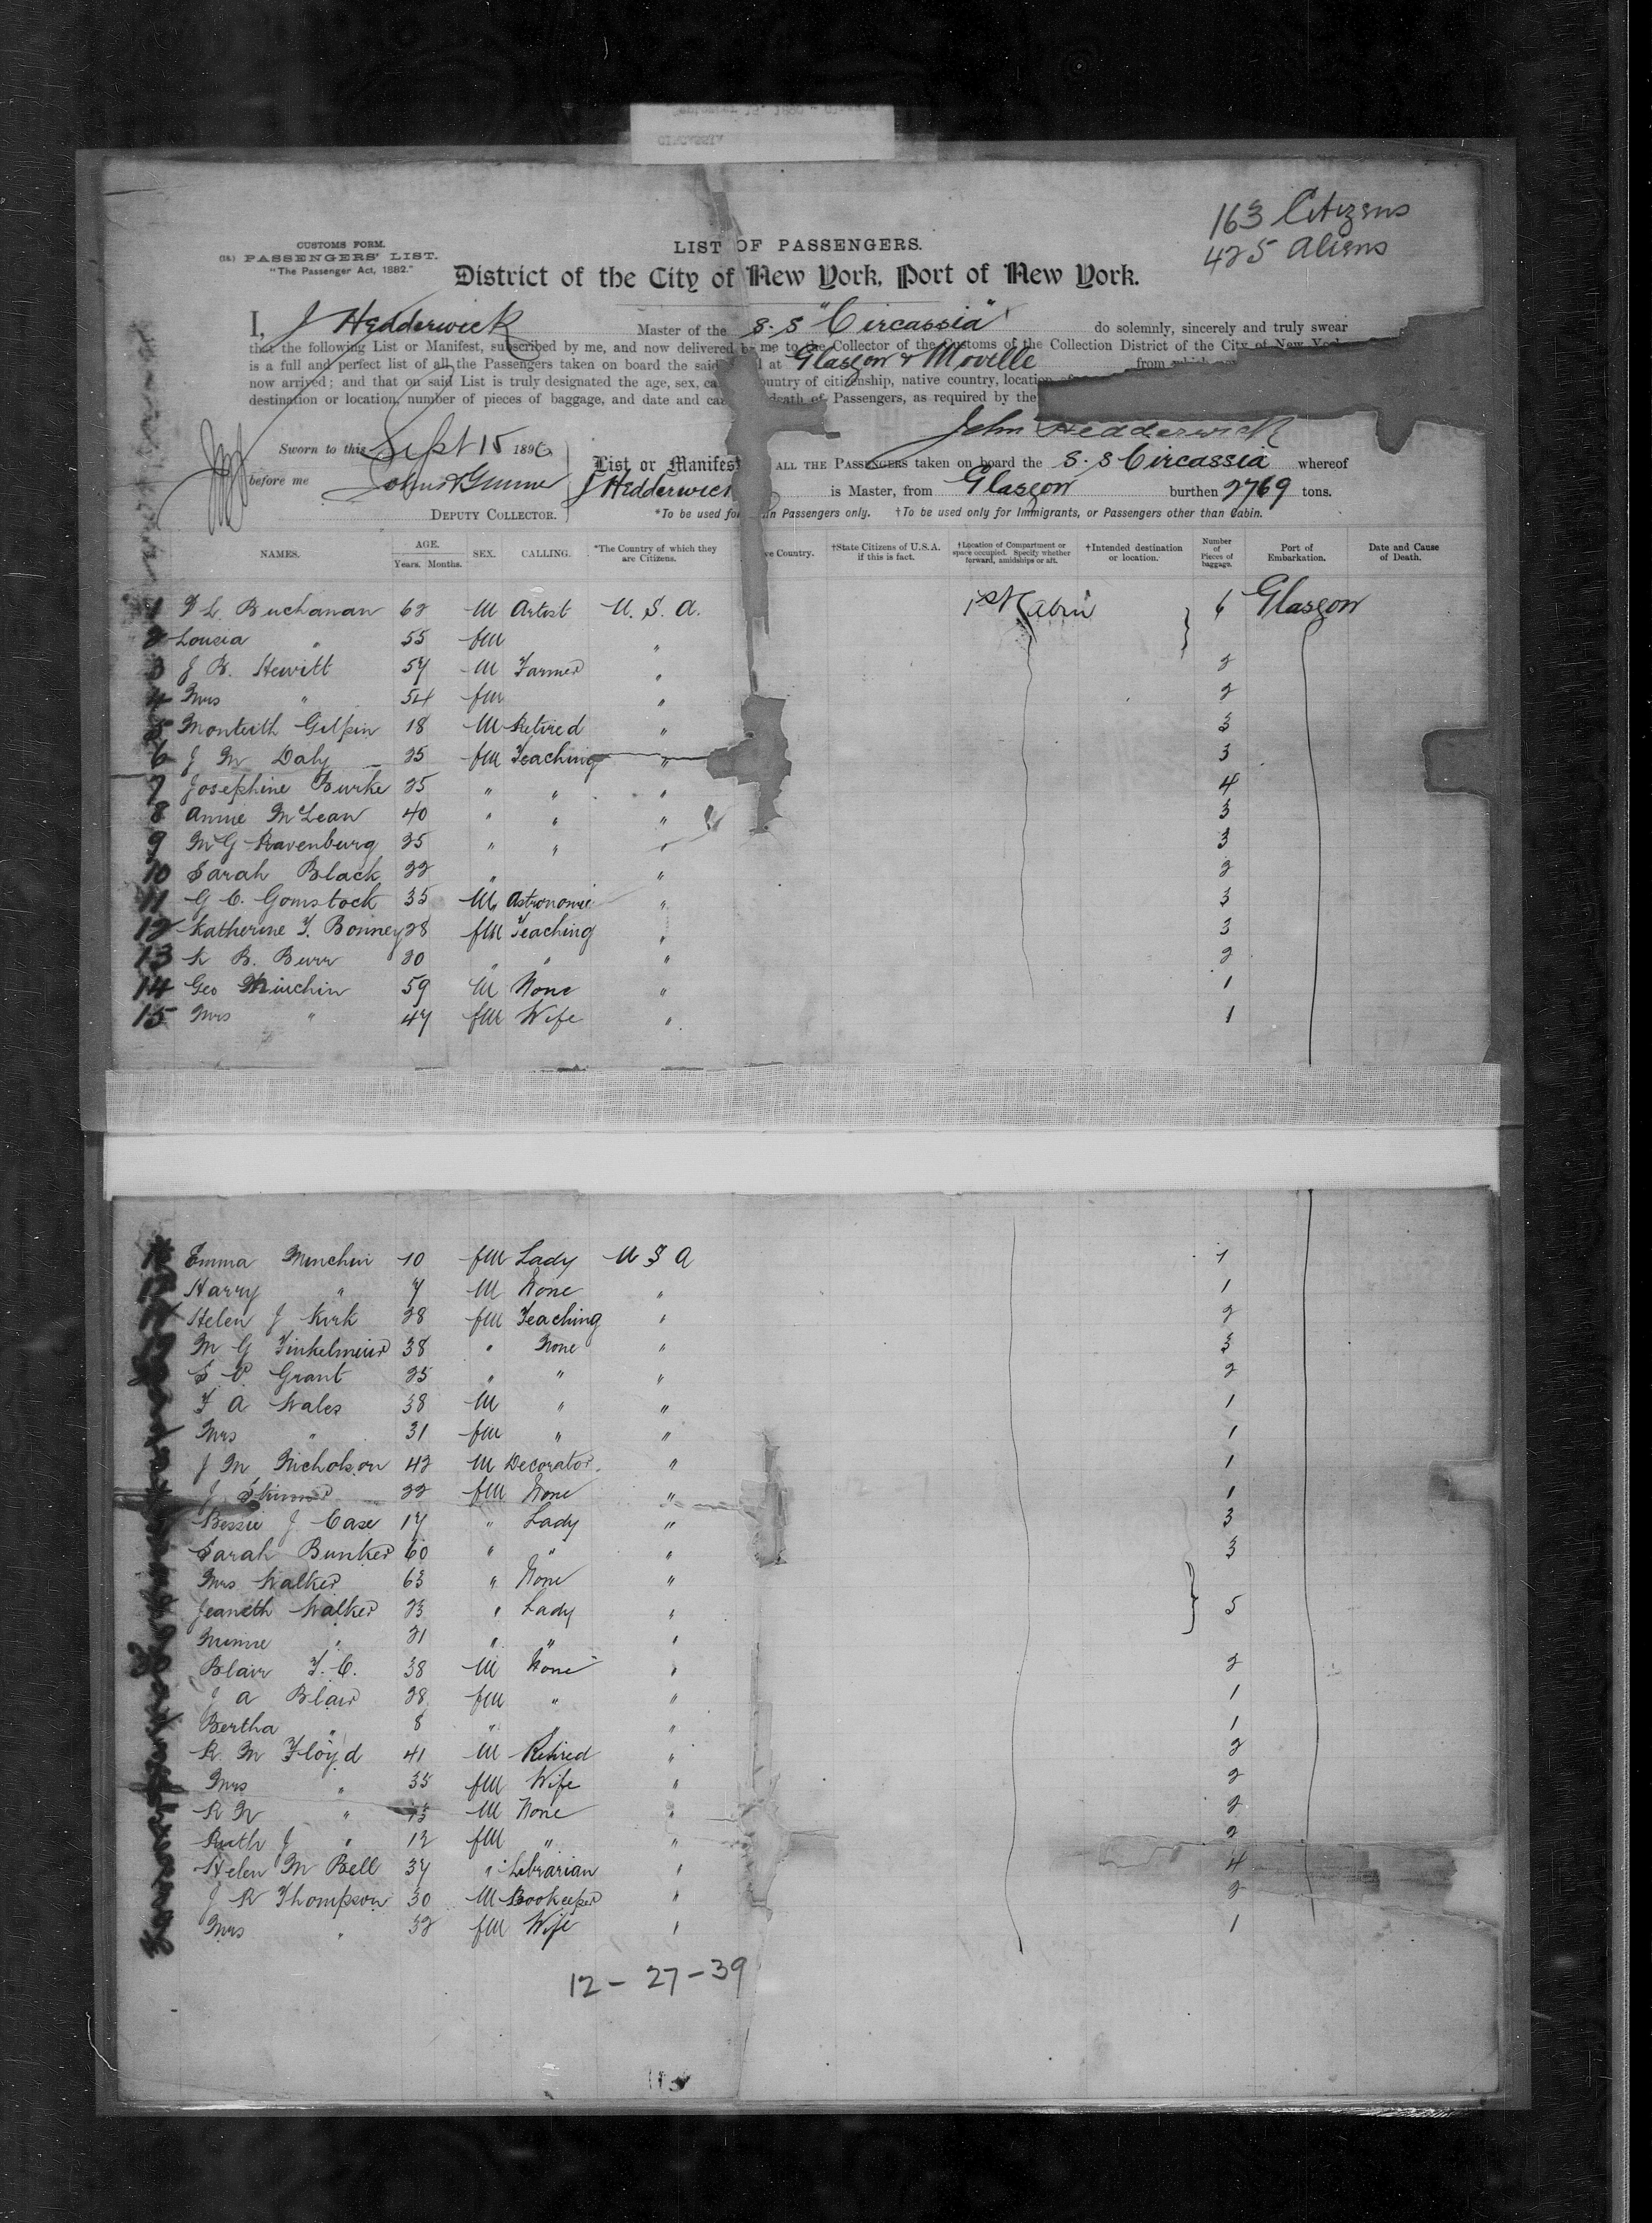 163 Citizens
425 Aliens
CUSTOMS FORM.
PASSENGERS' LIST.
"The Passenger Act, 1882."
LIST OF PASSENGERS.
District of the City of New York, Port of New York.
I, J Hedderwick Master of the S.S "Circassia" do solemnly, sincerely and truly swear
that the following List or Manifest, subscribed by me, and now delivered by me to the Collector of the Customs of the Collection District of the City of New York
is a full and perfect list of all the Passengers taken on board the said at Glasgow & Moville from which
now arrived; and that on said List is truly designated the age, sex, country of citizenship, native country, location
destination or location, number of pieces of baggage, and date and death of Passengers, as required by the
John Hedderwick
Sworn to this Sept 15 1896
before me
DEPUTY COLLECTOR.
List or Manifest ALL THE PASSENGERS taken on board the S.S Circassia whereof
J Hedderwick is Master, from Glasgow burthen 2769 tons.
*To be used for Passengers only. †To be used only for Immigrants, or Passengers other than Cabin.
NAMES. AGE. Years. Months. SEX. CALLING. *The Country of which they are Citizens. Country. †State Citizens of U.S.A. if this is fact. †Location of Compartment or space occupied. Specify whether forward, amidships or aft. †Intended destination or location. Number of Pieces of baggage. Port of Embarkation. Date and Cause of Death.
1 Buchanan 62 M Artist U. S. A. 1st Cabin 6 Glasgow
2 Lousia " 55 fm "
3 J B. Hewitt 57 M Farmer " 2
4 Mrs " 54 fm " 2
5 Monteith Gilpin 18 M Retired " 3
6 J M Daly 25 fm Teaching " 3
7 Josephine Burke 25 " " " 4
8 Annie McLean 40 " " " 3
9 M G Ravenburg 35 " " " 3
10 Sarah Black 22 " " 2
11 G C. Gomstock 35 M Astronomie " 3
12 Katherine T. Bonney 28 fm Teaching " 3
13 K B. Burr 30 " " " 2
14 Geo Minchin 59 M None " 1
15 Mrs " 47 fm Wife " 1
Emma Minchin 10 fm Lady U S A 1
Harry " 7 M None " 1
Helen J Kirk 28 fm Teaching " 2
M G Finkelmeier 38 " None " 3
S P Grant 25 " " " 2
F A Wales 38 M " " 1
Mrs " 31 fm " " 1
J M Nicholson 42 M Decorator " 1
J Skinner 22 fm None " 1
Bessie J Case 17 " Lady " 3
Sarah Bunker 60 " " " 3
Mrs Walker 63 " None "
Jeaneth Walker 23 " Lady " 5
Minnie " 21 " " "
Blair T. C. 38 M None " 2
J A Blair 28 fm " " 1
Bertha " 8 " " " 1
R. M Floyd 41 M Retired " 2
Mrs " 35 fm Wife " 2
R N " 15 M None " 2
Ruth J " 12 fm " " 2
Helen M Bell 37 " Librarian " 4
J R Thompson 30 M Bookeeper " 2
Mrs " 32 fm Wife " 1
12-27-39